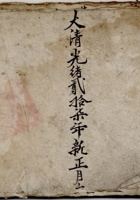 大清光緒貳拾柒年新正月立